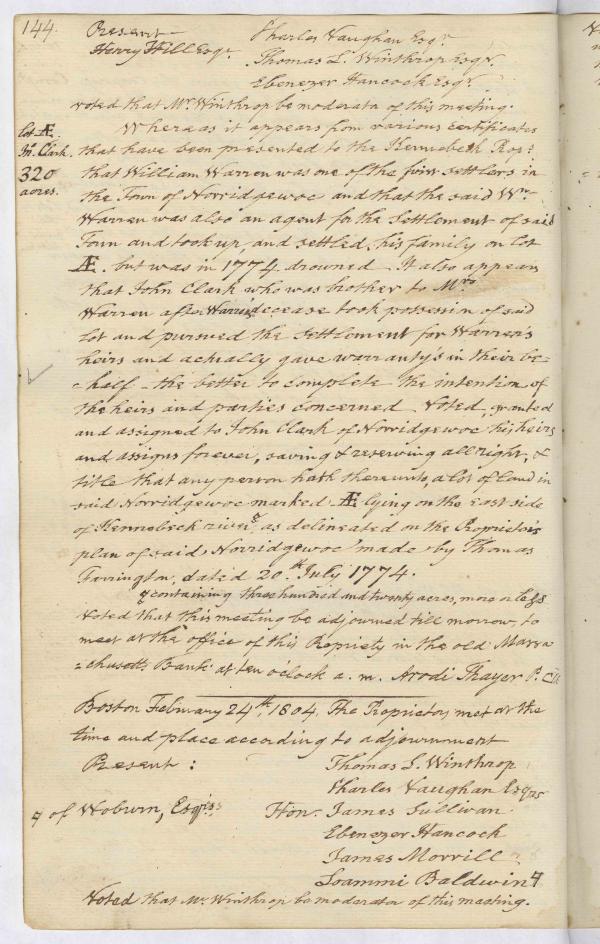 144.
Present
Henry Hill Esqr.
Charles Vaughan Esqr.
Thomas L. Winthrop Esqr.
Ebenezer Hancock Esqr.
voted that Mr. Winthrop be moderator of this meeting.
Lot Æ.
Jn. Clark.
320
acres.
Whereas it appears from various certificates
that have been presented to the Kennebeck Prop:
that William Warren was one of the first settlers in
the Town of Norridgewoc and that the said Wm.
Warren was also an agent for the settlement of said
Town and took up, and settled, his family on lot
Æ. but was in 1774. drowned It also appears
that John Clark who was brother to Mrs.
Warren after Warren's decease took possession of said
lot and pursued the settlement for Warren's
heirs and actually gave warranty's in their be=
=half - the better to complete the intention of
the heirs and parties concerned Voted, granted
and assigned to John Clark of Norridgewoc his heirs
and assigns forever, saving & reserving all right, &
title that any person hath thereunto, a lot of land in
said Norridgewoc marked Æ lying on the east side
of Kennebeck river, as delineated on the Proprietors
plan of said Norridgewoc made by Thomas
Farrington, dated 20.th July 1774.
& containing three hundred and twenty acres, more or less
Voted that this meeting be adjourned till morrow, to
meet at the office of this Propriety in the old Massa
=chusetts Bank at ten o'clock a. m. Arodi Thayer P. Clk
Boston February 24th. 1804. The Proprietors met at the
time and place according to adjournment
Present :
Thomas L. Winthrop
Charles Vaughan Esqrs
Hon. James Sullivan
Ebenezer Hancock
James Morrill
Loammi Baldwin
of Woburn, Esqrs:
Voted that Mr. Winthrop be moderator of this meeting.